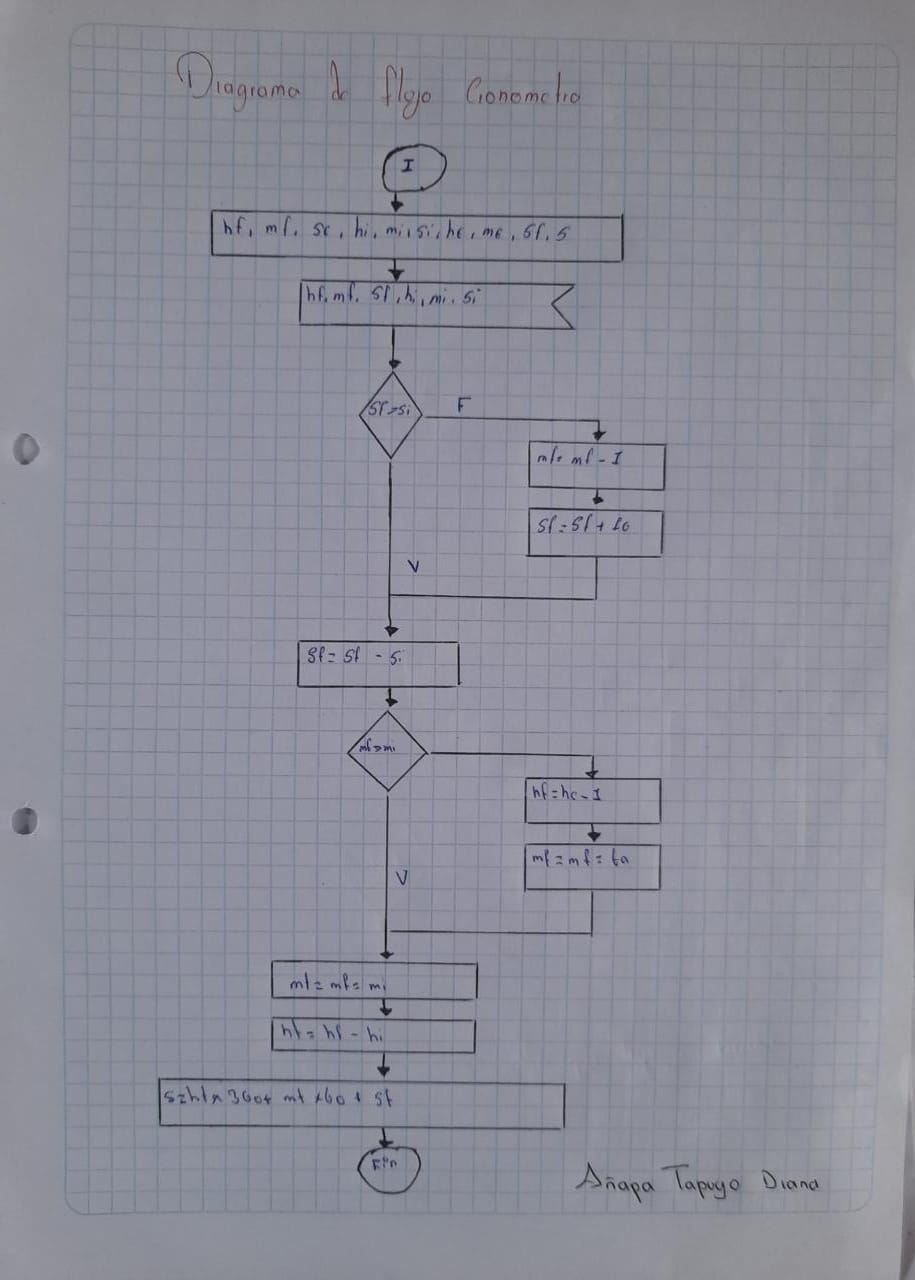 Diagrama de flujo Cronometro
I
hf, mf, sc, hi, mi, si, hc, mc, Sf, S
hf, mf, Sf, hi, mi, Si
Sf>Si
F
mf= mf - I
Sf = Sf + 60
V
Sf= Sf - Si
mf>mi
hf=hc-I
mf=mf=60
V
mt= mf= mi
ht= hf - hi
S=ht* 360+ mt *60 + Sf
Fin
Añapa Tapuyo Diana